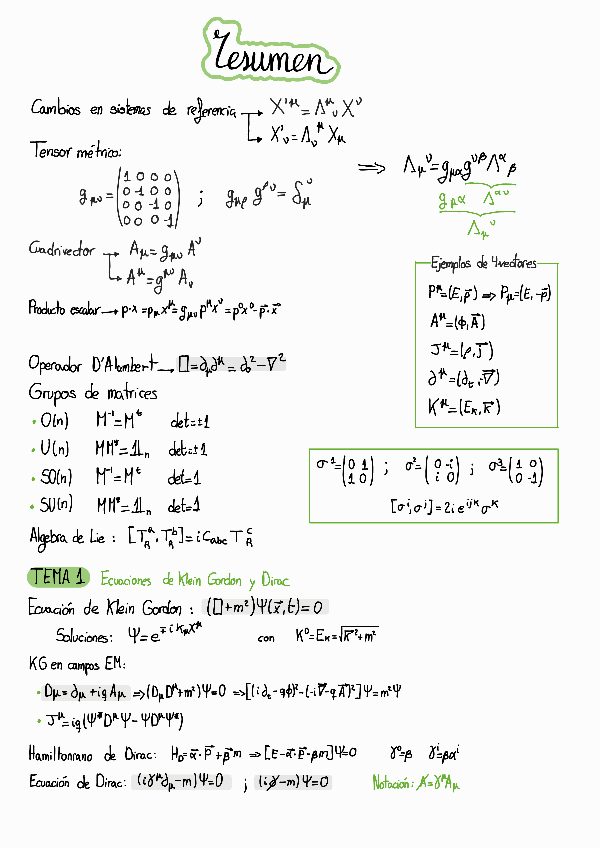 Resumen
Cambios en sistemas de referencia → X'^μ = Λ^μ_ν X^ν
→ X'_ν = Λ_ν^μ X_μ
Tensor métrico:
g_μν = (1 0 0 0 / 0 -1 0 0 / 0 0 -1 0 / 0 0 0 -1) ; g_μρ g^ρν = δ_μ^ν
⇒ Λ_μ^ν = g_μα g^νβ Λ^α_β
g_μα Λ^αν
Λ_μ^ν
Cuadrivector → A_μ = g_μν A^ν
→ A^μ = g^μν A_ν
Producto escalar → p·x = p_μ x^μ = g_μν p^μ x^ν = p⁰x⁰ - p⃗·x⃗
Ejemplos de 4vectores
P^μ = (E, p⃗) ⇒ P_μ = (E, -p⃗)
A^μ = (ϕ, A⃗)
J^μ = (ρ, J⃗)
∂^μ = (∂_t, -∇⃗)
K^μ = (E_K, K⃗)
Operador D'Alambert → □ = ∂_μ∂^μ = ∂₀² - ∇²
Grupos de matrices
• O(n) M⁻¹ = M^t det = ±1
• U(n) MM* = 𝟙_n det = ±1
• SO(n) M⁻¹ = M^t det = 1
• SU(n) MM* = 𝟙_n det = 1
σ¹ = (0 1 / 1 0) ; σ² = (0 -i / i 0) ; σ³ = (1 0 / 0 -1)
[σ^i, σ^j] = 2i e^ijk σ^k
Algebra de Lie : [T_R^a, T_R^b] = i C_abc T_R^c
TEMA 1 Ecuaciones de Klein Gordon y Dirac
Ecuación de Klein Gordon : (□ + m²)Ψ(x⃗, t) = 0
Soluciones: Ψ = e^∓iK_μX^μ con K⁰ = E_K = √(K⃗² + m²)
KG en campos EM:
• D_μ = ∂_μ + iqA_μ ⇒ (D_μD^μ + m²)Ψ = 0 ⇒ [(i∂_t - qϕ)² - (-i∇⃗ - qA⃗)²]Ψ = m²Ψ
• J^μ = iq(Ψ*D^μΨ - ΨD^μΨ*)
Hamiltoniano de Dirac: H_D = α⃗·P⃗ + βm ⇒ [E - α⃗·P⃗ - βm]Ψ = 0 γ⁰ = β γ^i = βα^i
Ecuación de Dirac: (iγ^μ∂_μ - m)Ψ = 0 ; (i∂̸ - m)Ψ = 0 Notación: A̸ = γ^μA_μ